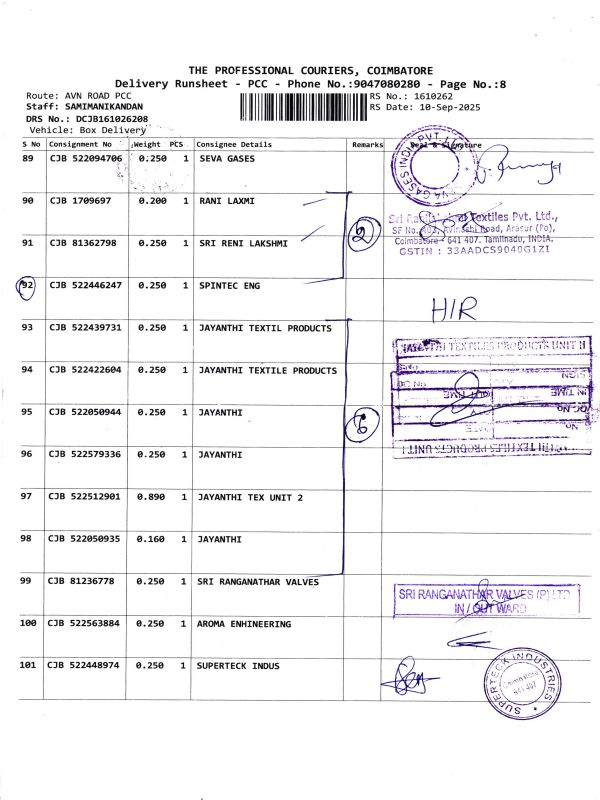 THE PROFESSIONAL COURIERS, COIMBATORE
Delivery Runsheet - PCC - Phone No.:9047080280 - Page No.:8
Route: AVN ROAD PCC
RS No.: 1610262
Staff: SAMIMANIKANDAN
RS Date: 10-Sep-2025
DRS No.: DCJB161026208
Vehicle: Box Delivery
S No Consignment No Weight PCS Consignee Details Remarks Seal & Signature
89 CJB 522094706 0.250 1 SEVA GASES
90 CJB 1709697 0.200 1 RANI LAXMI
91 CJB 81362798 0.250 1 SRI RENI LAKSHMI
2
Textiles Pvt. Ltd.,
SF No. 402, Avinashi Road, Arasur (Po),
Coimbatore - 641 407. Tamilnadu, INDIA.
GSTIN : 33AADCS9040G1ZI
92 CJB 522446247 0.250 1 SPINTEC ENG
H/R
93 CJB 522439731 0.250 1 JAYANTHI TEXTIL PRODUCTS
94 CJB 522422604 0.250 1 JAYANTHI TEXTILE PRODUCTS
TEXTILES PRODUCTS UNIT II
IN TIME OUT TIME
95 CJB 522050944 0.250 1 JAYANTHI
6
96 CJB 522579336 0.250 1 JAYANTHI
TEXTILES PRODUCTS UNIT
97 CJB 522512901 0.890 1 JAYANTHI TEX UNIT 2
98 CJB 522050935 0.160 1 JAYANTHI
99 CJB 81236778 0.250 1 SRI RANGANATHAR VALVES
SRI RANGANATHAR VALVES (P) LTD
IN / OUT WARD
100 CJB 522563884 0.250 1 AROMA ENHINEERING
101 CJB 522448974 0.250 1 SUPERTECK INDUS
SUPERTECK INDUSTRIES
Coimbatore
641 407